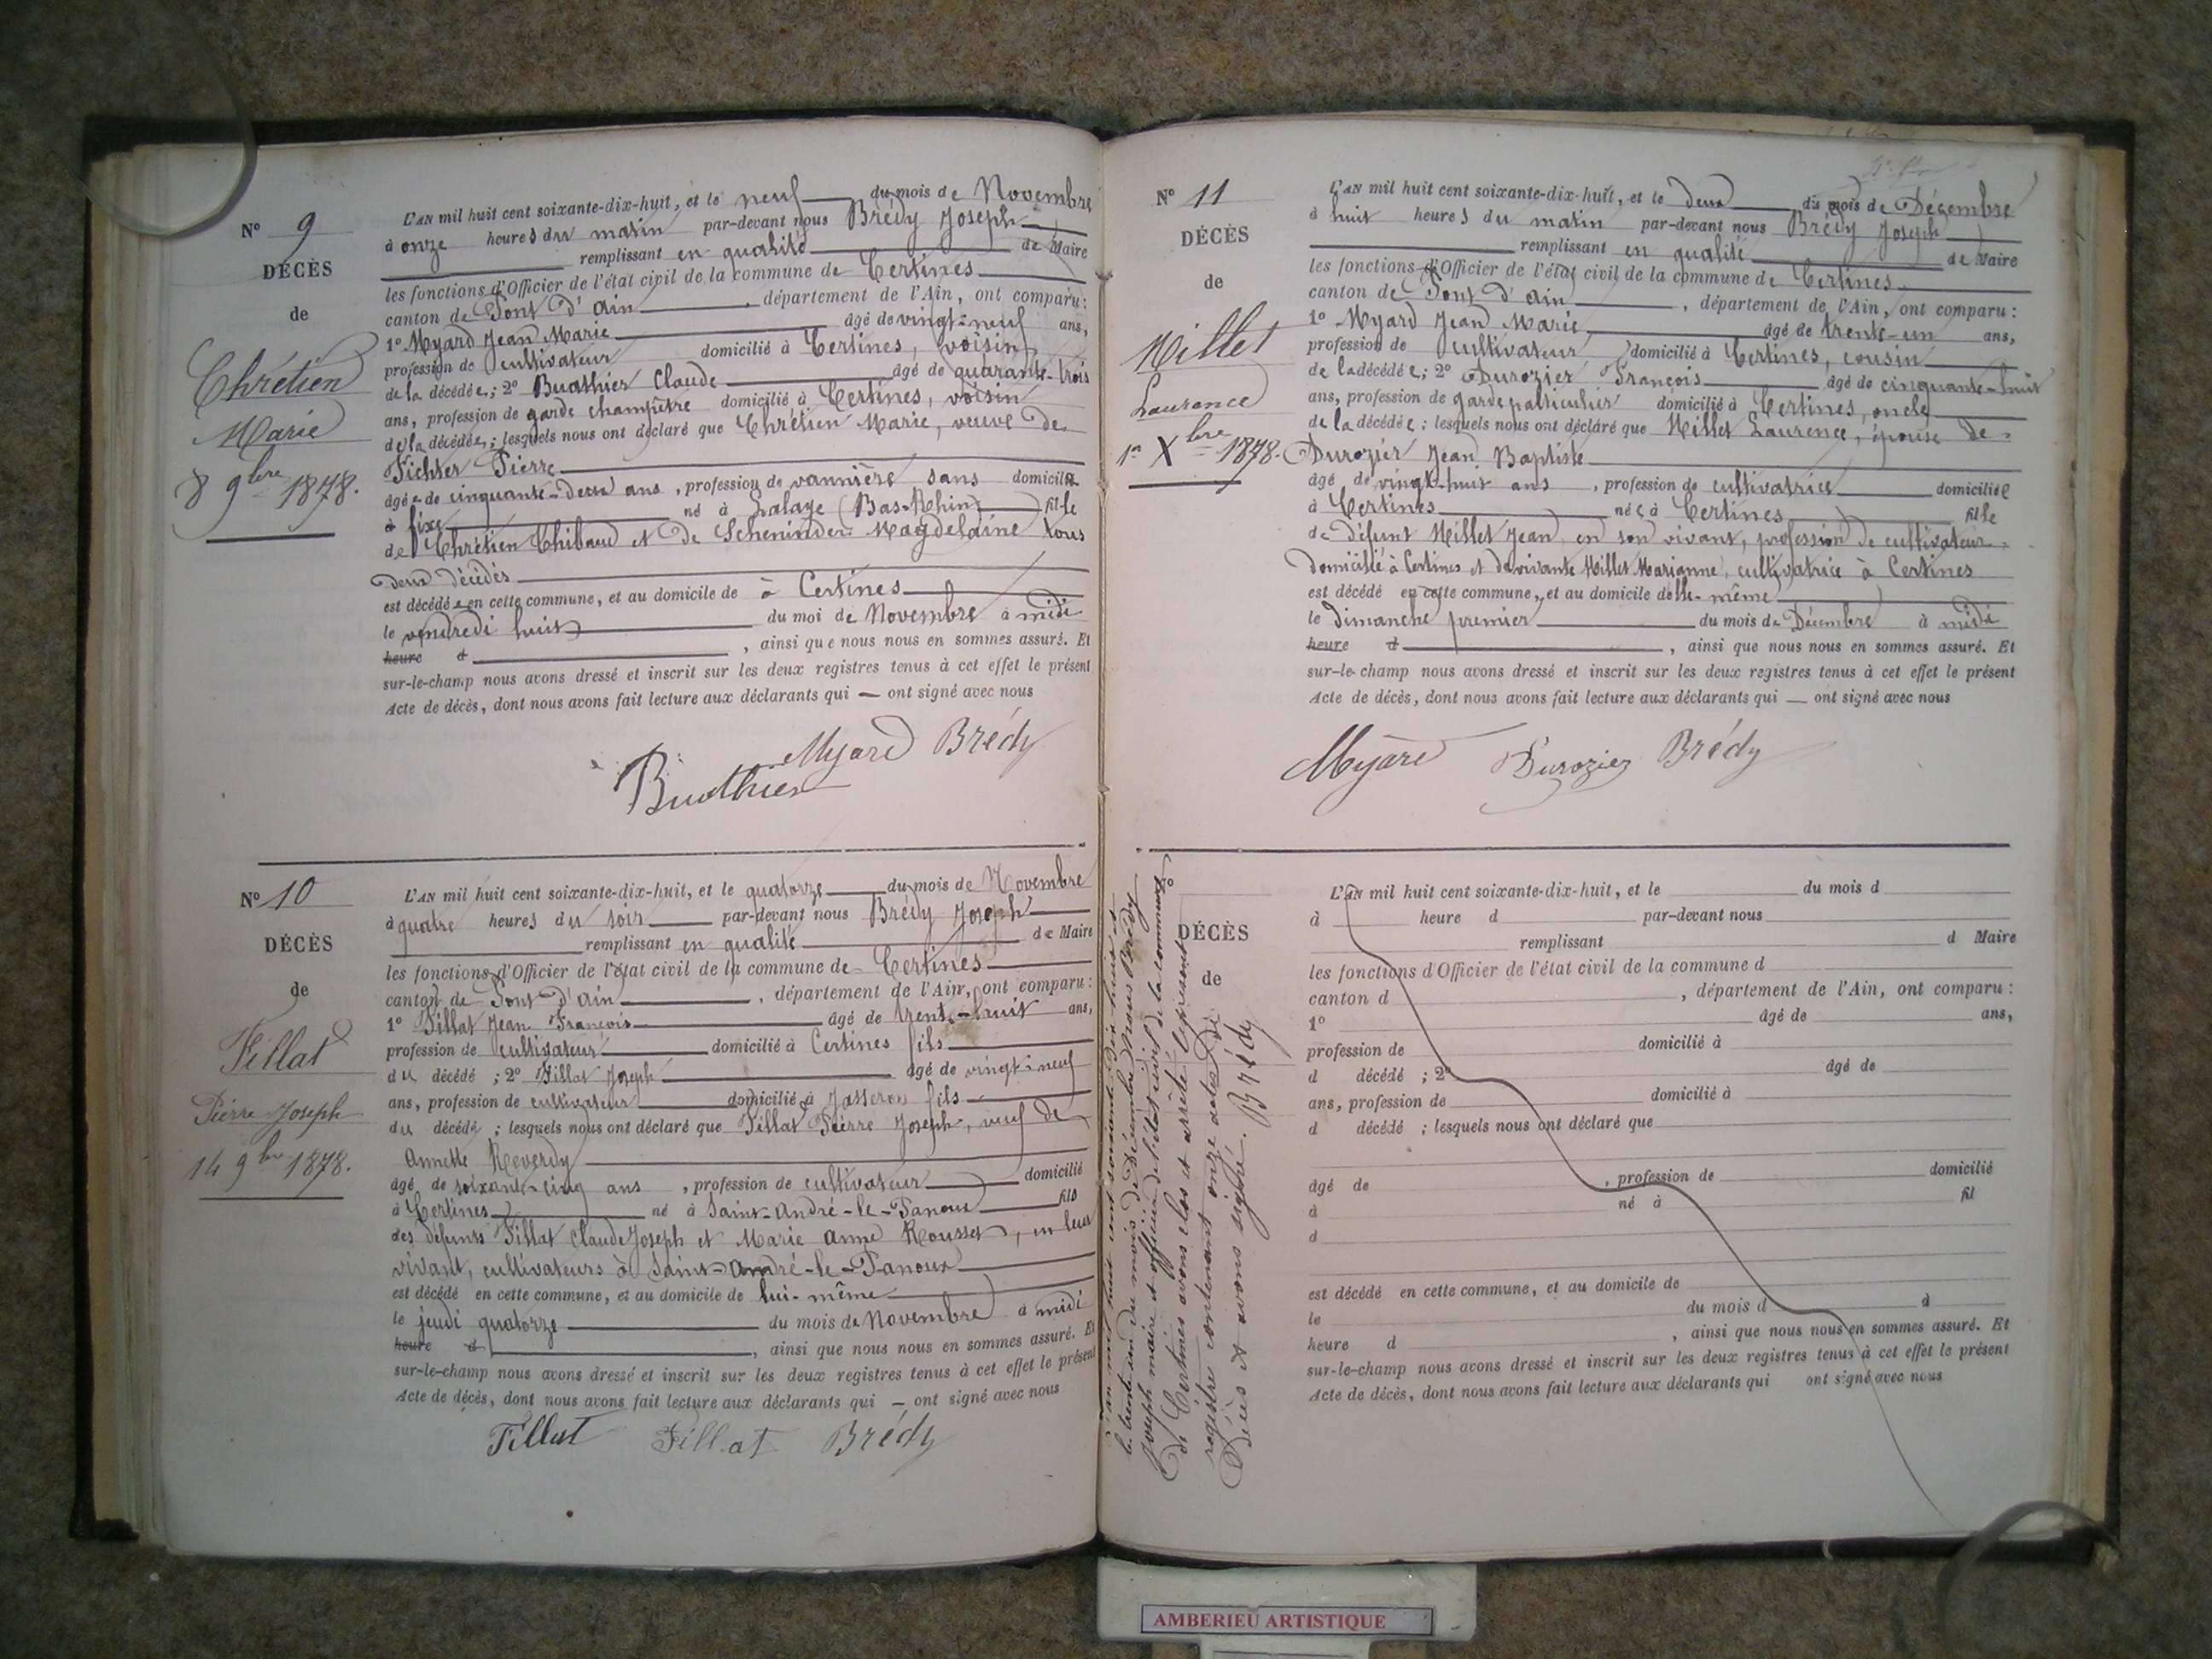 N° 9
DÉCÈS
de
Chrétien
Marie
8 9bre 1878.
L'AN mil huit cent soixante-dix-huit, et le neuf du mois de Novembre
à onze heures du matin par-devant nous Brédy Joseph
remplissant en qualité de Maire
les fonctions d'Officier de l'état civil de la commune de Certines
canton de Pont d'Ain, département de l'Ain, ont comparu:
1° Myard Jean Marie âgé de vingt-neuf ans,
profession de cultivateur domicilié à Certines, voisin
de la décédée; 2° Buathier Claude âgé de quarante-trois
ans, profession de garde champêtre domicilié à Certines, voisin
de la décédée; lesquels nous ont déclaré que Chrétien Marie, veuve de
Fichter Pierre
âgée de cinquante-deux ans, profession de vannière sans domicile
à fixe né à Lalaye (Bas-Rhin) fille
de Chrétien Thibaud et de Scheninder Magdelaine tous
deux décédés
est décédée en cette commune, et au domicile de à Certines
le vendredi huit du moi de Novembre à midi
heure d , ainsi que nous nous en sommes assuré. Et
sur-le-champ nous avons dressé et inscrit sur les deux registres tenus à cet effet le présent
Acte de décès, dont nous avons fait lecture aux déclarants qui — ont signé avec nous
Myard Brédy
Buathier
N° 10
DÉCÈS
de
Fillat
Pierre Joseph
14 9bre 1878.
L'AN mil huit cent soixante-dix-huit, et le quatorze du mois de Novembre
à quatre heures du soir par-devant nous Brédy Joseph
remplissant en qualité de Maire
les fonctions d'Officier de l'état civil de la commune de Certines
canton de Pont d'Ain, département de l'Ain, ont comparu:
1° Fillat Jean François âgé de trente-huit ans,
profession de cultivateur domicilié à Certines fils
du décédé; 2° Fillat Joseph âgé de vingt-neuf
ans, profession de cultivateur domicilié à Jasseron fils
du décédé; lesquels nous ont déclaré que Fillat Pierre Joseph, veuf de
Annette Reverdy
âgé de soixante-cinq ans, profession de cultivateur domicilié
à Certines né à Saint-André-le-Panoux fils
des défunts Fillat Claude Joseph et Marie Anne Rousset, en leur
vivant, cultivateurs à Saint-André-le-Panoux
est décédé en cette commune, et au domicile de lui-même
le jeudi quatorze du mois de Novembre à midi
heure d , ainsi que nous nous en sommes assuré. Et
sur-le-champ nous avons dressé et inscrit sur les deux registres tenus à cet effet le présent
Acte de décès, dont nous avons fait lecture aux déclarants qui — ont signé avec nous
Fillat Fillat Brédy
N° 11
DÉCÈS
de
Millet
Laurence
1er Xbre 1878.
L'AN mil huit cent soixante-dix-huit, et le deux du mois de Décembre
à huit heures du matin par-devant nous Brédy Joseph
remplissant en qualité de Maire
les fonctions d'Officier de l'état civil de la commune de Certines
canton de Pont d'Ain, département de l'Ain, ont comparu:
1° Myard Jean Marie âgé de trente-un ans,
profession de cultivateur domicilié à Certines, cousin
de la décédée; 2° Durozier François âgé de cinquante-huit
ans, profession de garde particulier domicilié à Certines, oncle
de la décédée; lesquels nous ont déclaré que Millet Laurence, épouse de
Durozier Jean Baptiste
âgé de vingt-huit ans, profession de cultivatrice domiciliée
à Certines née à Certines fille
de défunt Millet Jean, en son vivant, profession de cultivateur
domicilié à Certines et de vivante Millet Marianne, cultivatrice à Certines
est décédé en cette commune, et au domicile d'elle-même
le dimanche premier du mois de Décembre à midi
heure d , ainsi que nous nous en sommes assuré. Et
sur-le-champ nous avons dressé et inscrit sur les deux registres tenus à cet effet le présent
Acte de décès, dont nous avons fait lecture aux déclarants qui — ont signé avec nous
Myard Durozier Brédy
L'an mil huit cent soixante-dix-huit et
le trente-un du mois de Décembre Nous Brédy
Joseph maire et officier de l'état civil de la commune
de Certines avons clos et arrêté le présent
registre contenant onze actes de
Décès et avons signé. Brédy
N°
DÉCÈS
de
L'AN mil huit cent soixante-dix-huit, et le du mois d
à heure d par-devant nous
remplissant d Maire
les fonctions d'Officier de l'état civil de la commune d
canton d , département de l'Ain, ont comparu:
1° âgé de ans,
profession de domicilié à
d décédé ; 2° âgé de
ans, profession de domicilié à
d décédé ; lesquels nous ont déclaré que
âgé de , profession de domicilié
à né à fil
d
est décédé en cette commune, et au domicile de
le du mois d à
heure d , ainsi que nous nous en sommes assuré. Et
sur-le-champ nous avons dressé et inscrit sur les deux registres tenus à cet effet le présent
Acte de décès, dont nous avons fait lecture aux déclarants qui ont signé avec nous
AMBERIEU ARTISTIQUE